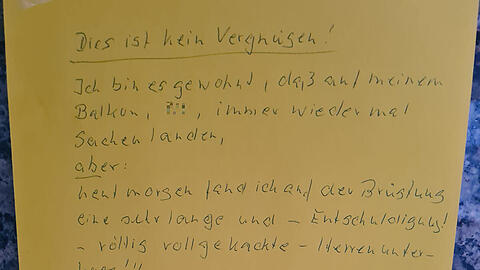 Dies ist kein Vergnügen!
Ich bin es gewohnt, daß auf meinem
Balkon, , immer wieder mal
Sachen landen,
aber:
heut morgen fand ich auf der Brüstung
eine sehr lange und - Entschuldigung!
- völlig vollgekackte - Herrenunter-
hose!!!